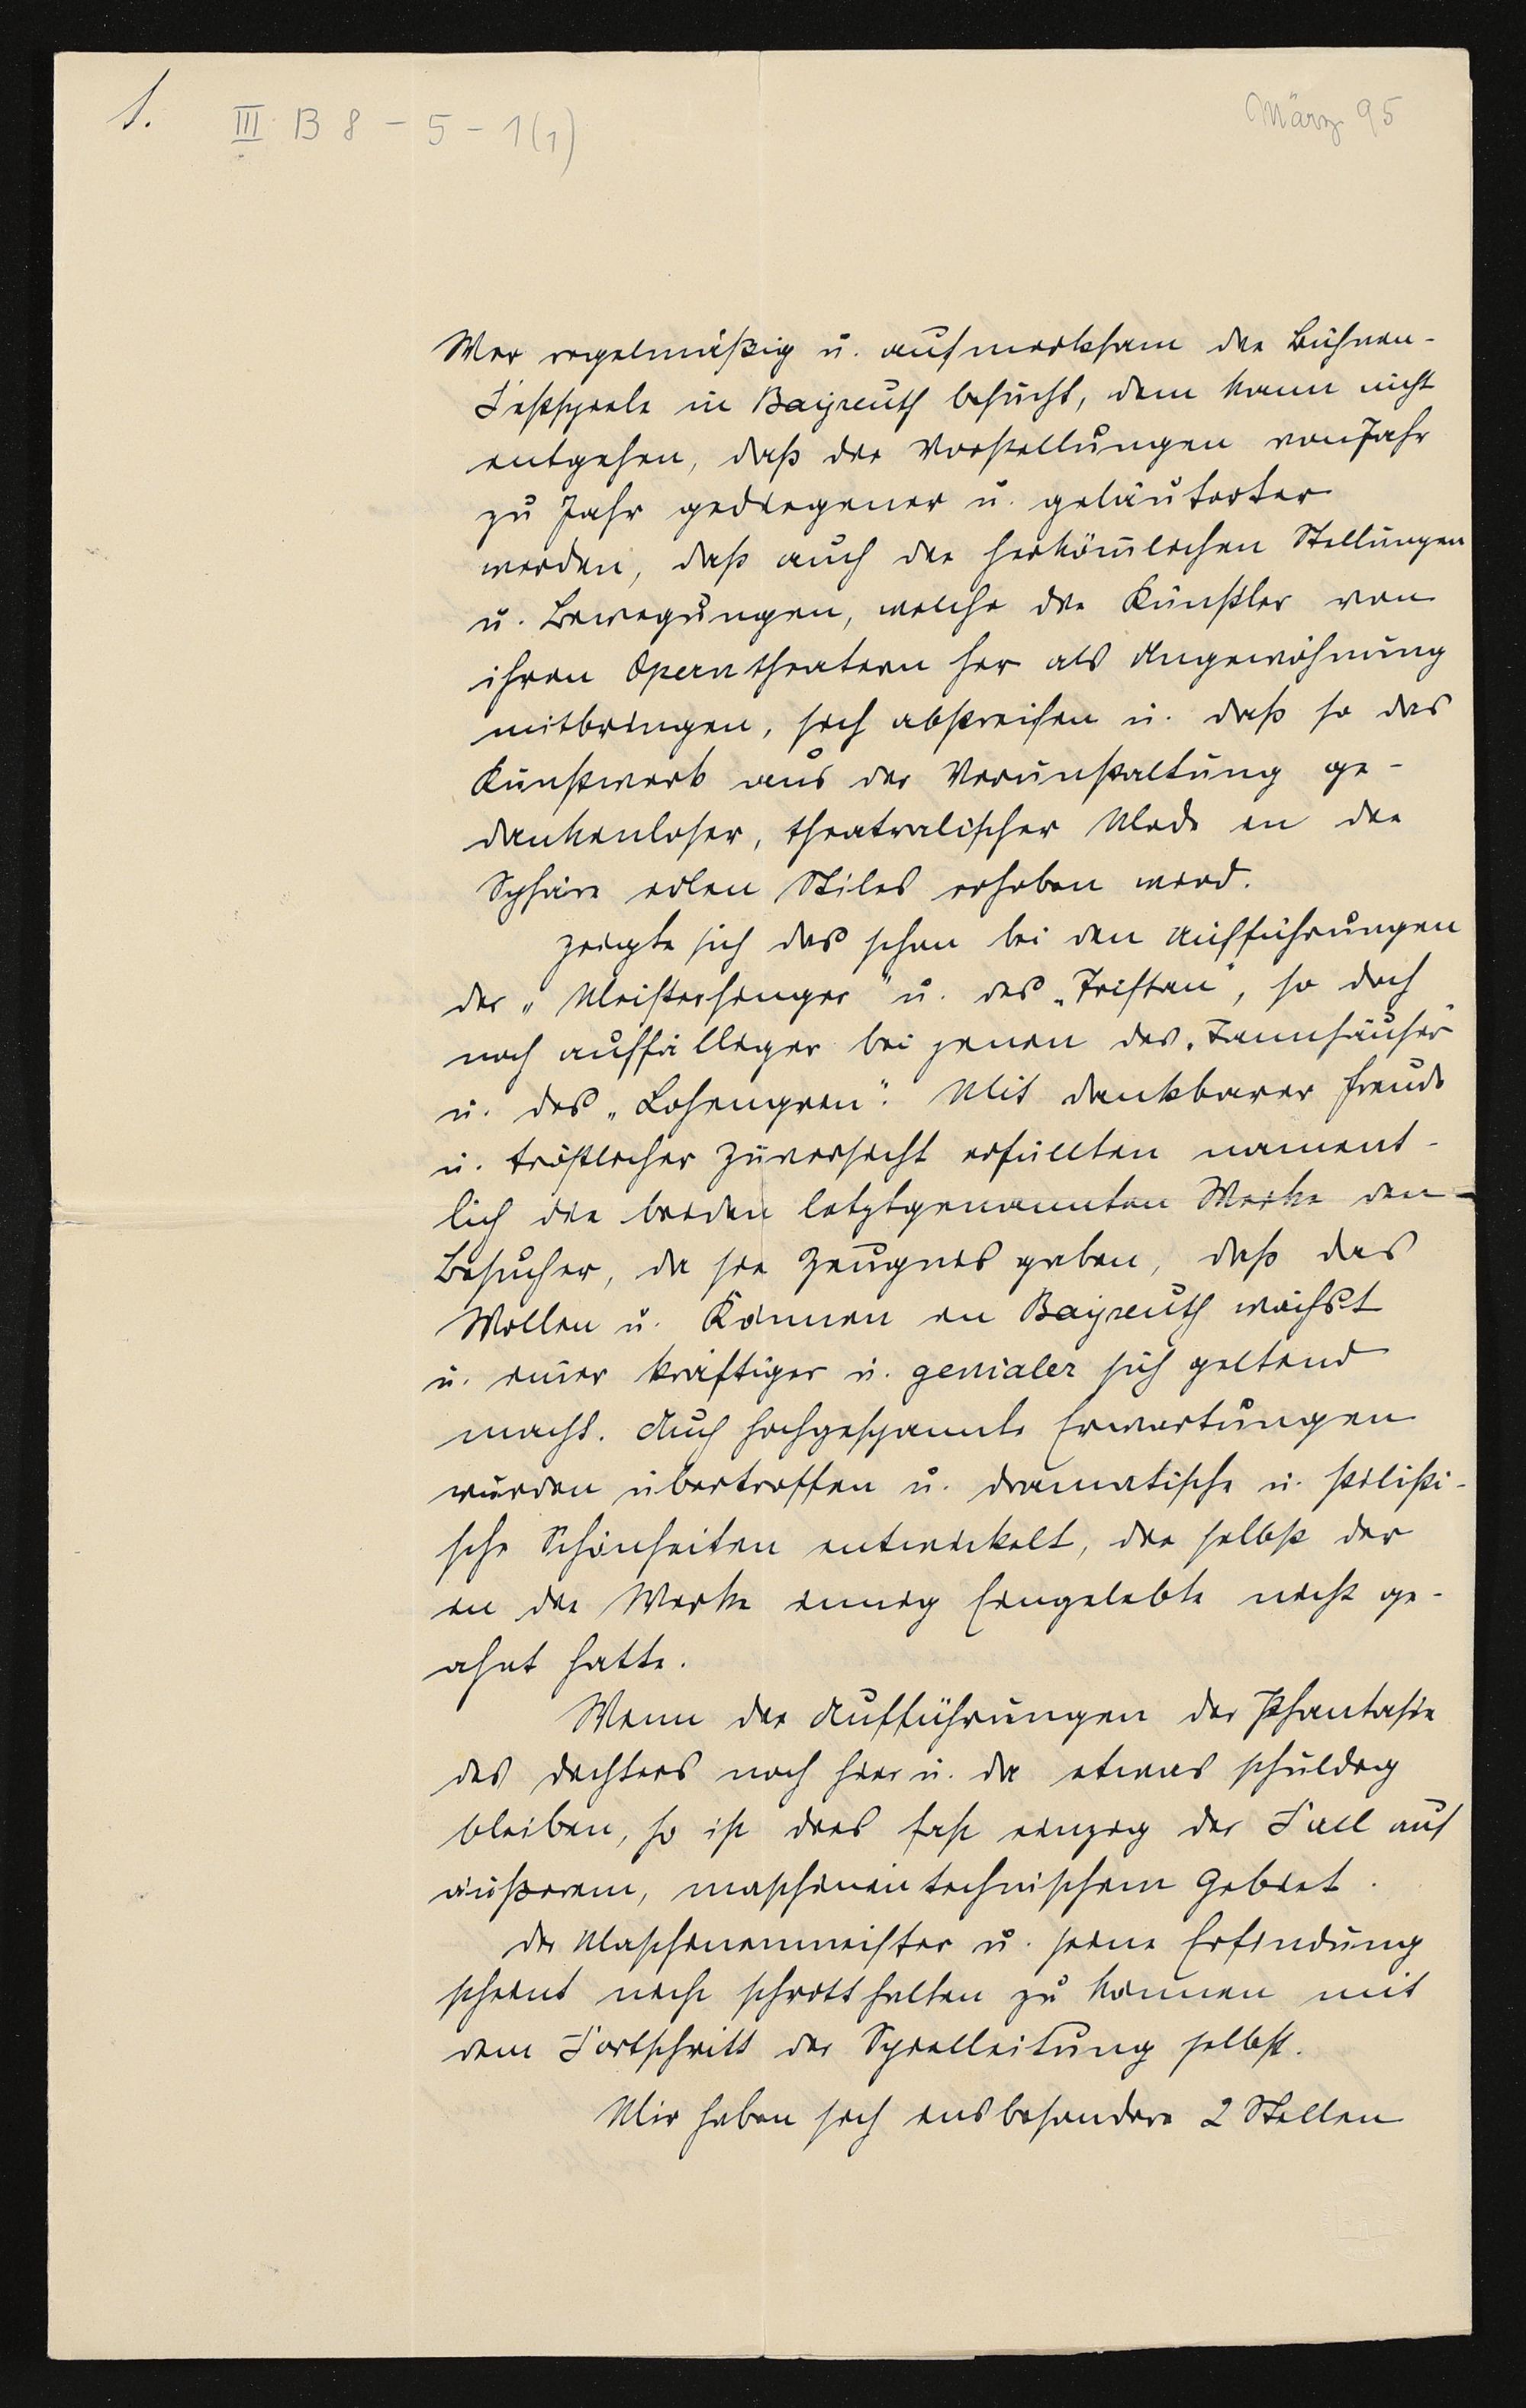 1.
III B 8 - 5 - 1(1)
März 95
Wer regelmäßig u. aufmerksam die Bühnen-
Festspiele in Bayreuth besucht, dem kann nicht
entgehen, daß die Vorstellungen von Jahr
zu Jahr gediegener u. geläuterter
werden, daß auch die herköm̅lichen Stellungen
u. Bewegungen, welche die Künstler von
ihren Operntheatern her als Angewöhnung
mitbringen, sich abstreifen u. daß so das
Kunstwerk aus der Verunstaltung ge-
dankenloser, theatralischer Mode in die
Sphäre edlen Stiles erhoben wird.
Zeigte sich das schon bei den Aufführungen
der „Meistersinger" u. des „Tristan", so doch
noch auffälliger bei jenen des „Tannhäuser"
u. des „Lohengrin". Mit dankbarer Freude
u. tröstlicher Zuversicht erfüllten nament-
lich die beiden letztgenannten Werke den
Besucher, da sie Zeugnis gaben, daß das
Wollen u. Können in Bayreuth wächst
u. im̅er kräftiger u. genialer sich geltend
macht. Auch hochgespannte Erwartungen
wurden übertroffen u. dramatische u. stilisti-
sche Schönheiten entwickelt, die selbst der
in die Werke innig Eingelebte nicht ge-
ahnt hatte.
Wenn die Aufführungen der Phantasie
des Dichters noch hier u. da etwas schuldig
bleiben, so ist dies fast einzig der Fall auf
äußerem, maschinentechnischem Gebiet.
Der Maschinenmeister u. seine Erfindung
scheint nicht schritthalten zu können mit
dem Fortschritt der Spielleitung selbst.
Mir haben sich insbesondere 2 Stellen